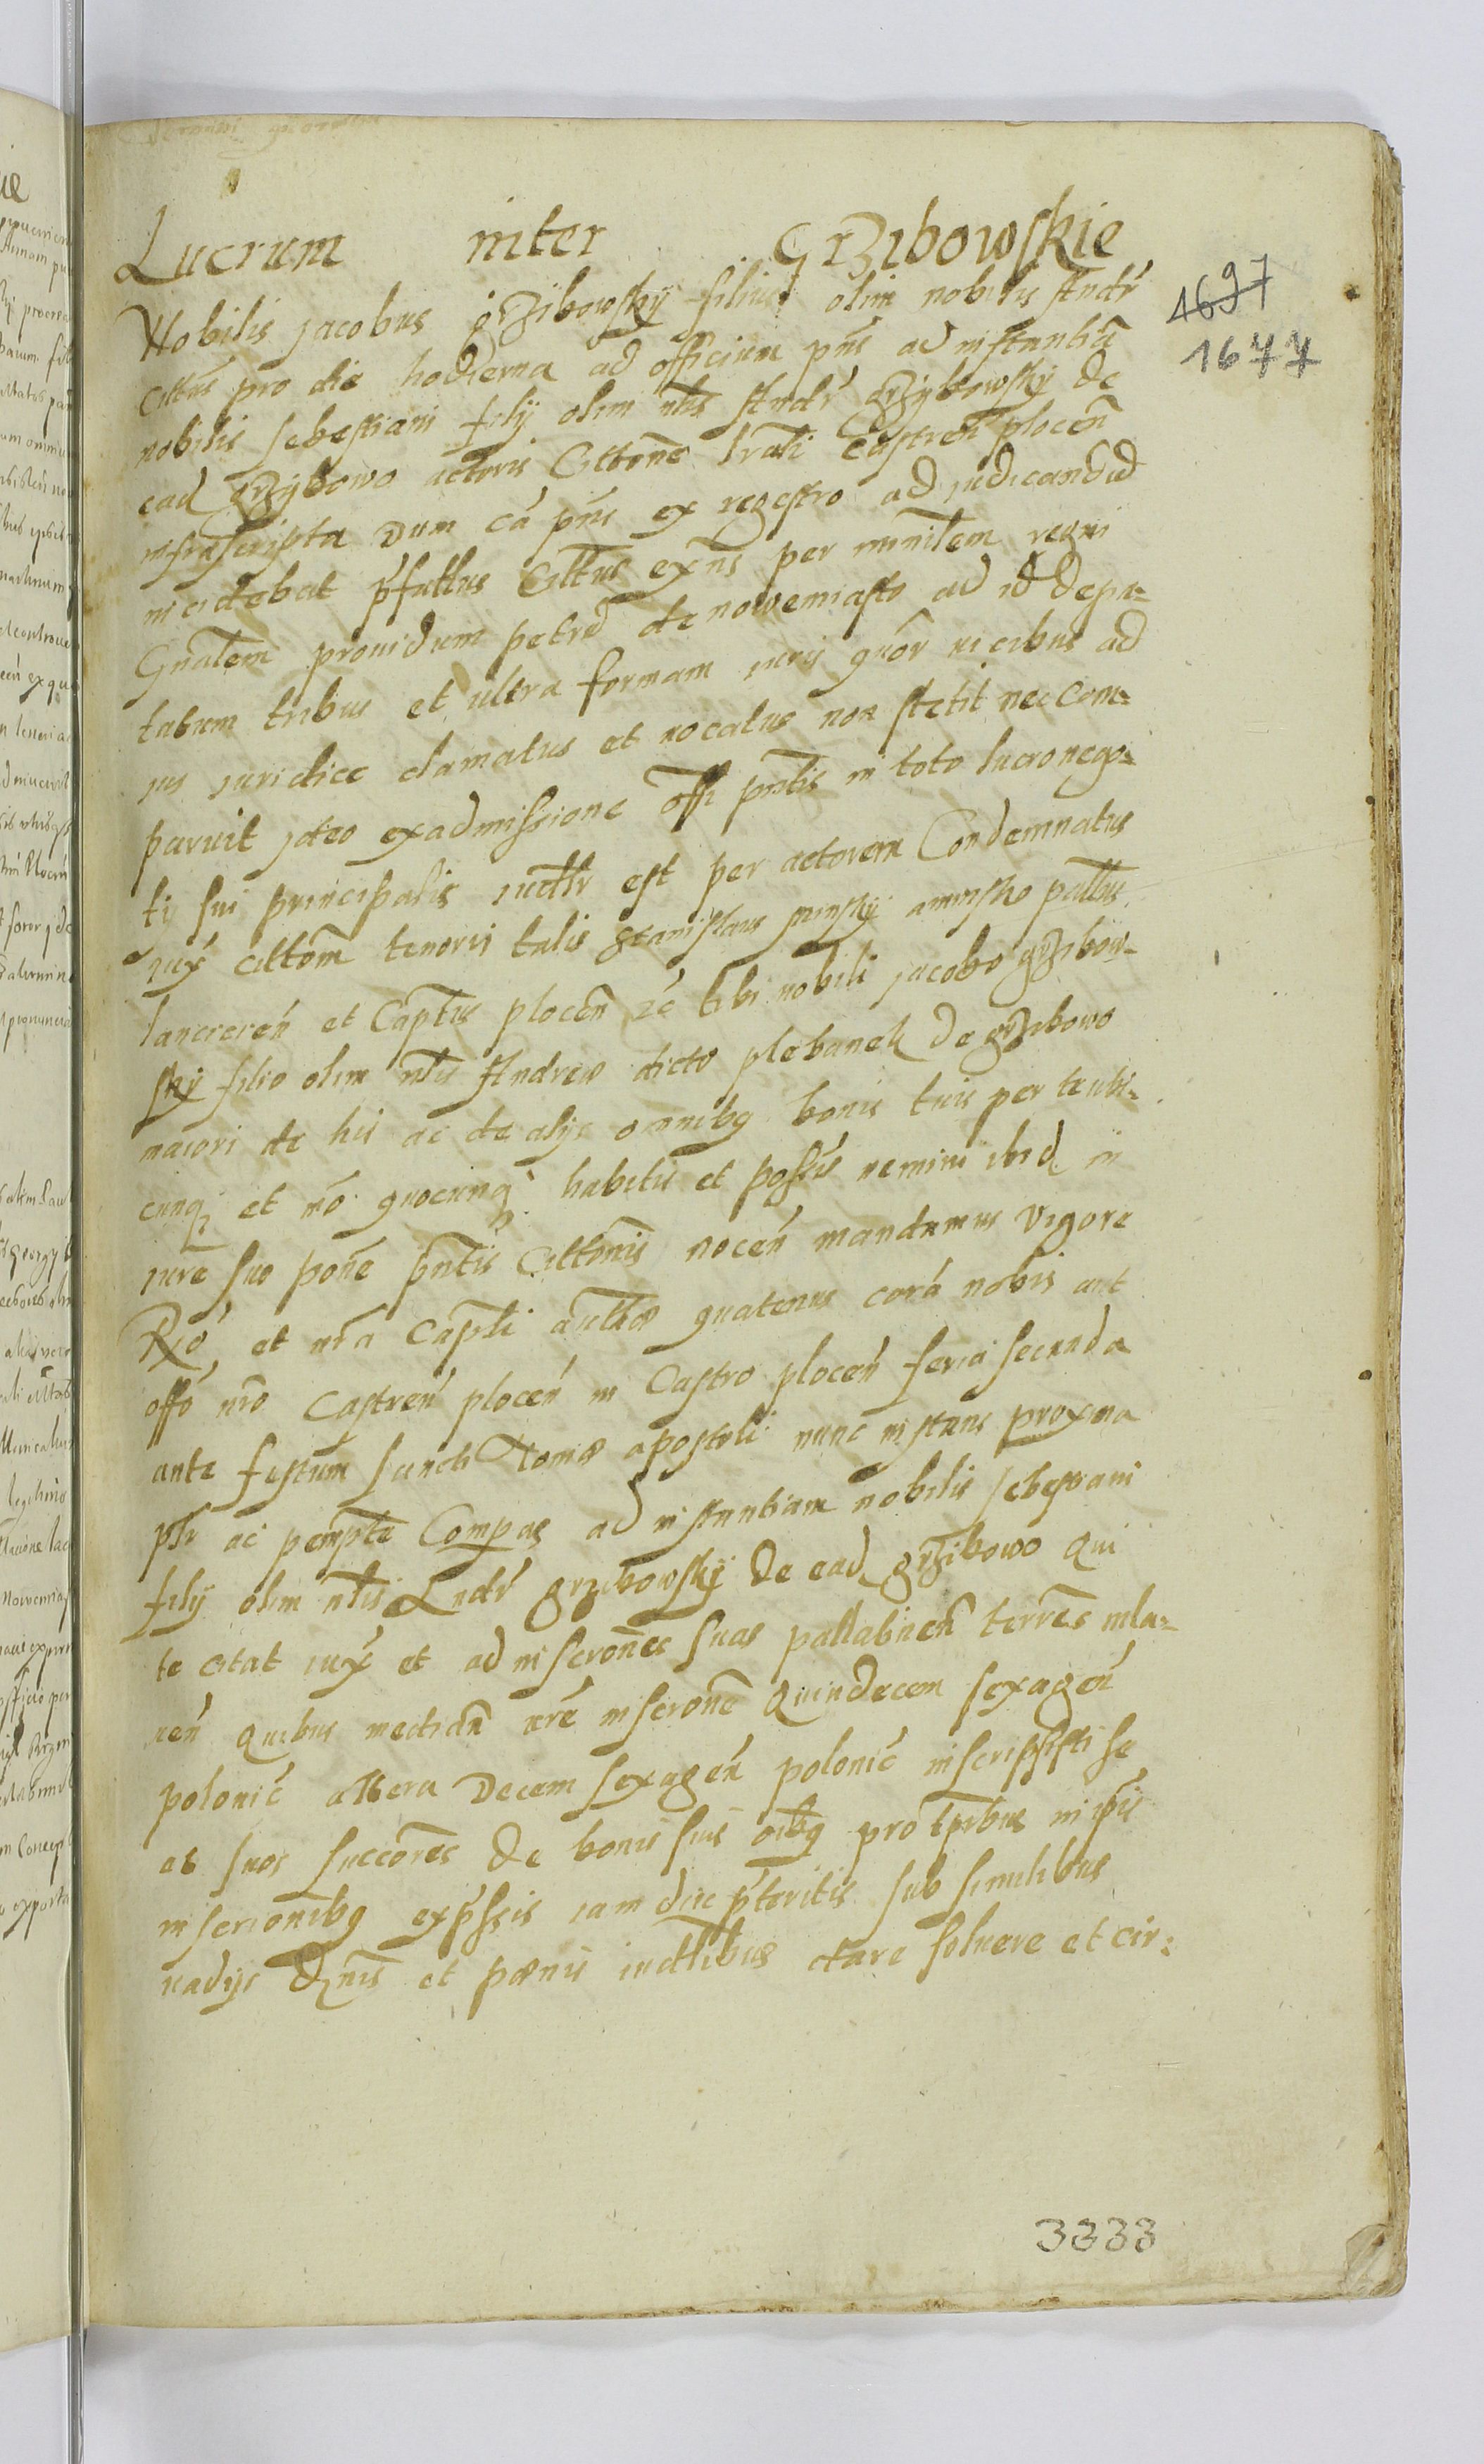 Lucrum inter Grzibowskie
Nobilis Jacobus grzibowskÿ filius olim nobilis Andr
Cittus pro die hodierna ad officium pñs ad instantiã
nobilis Sebestiani filÿ olim nlis Andr grzÿbowskÿ de
ead grzÿbowo actoris Citton̄e lrali Castren̄ plocen̄
infrascripta Dum cã pñs ex regestro ad judicandũ
incidebat p̃fattus Cittus exñs per ministem regni
Gñalem prouidum petrũ de nowemiasto ad id depu-
tatum tribus et ultra formam iuris quõr vicibus ad
ius iuridice clamatus et vocatus non stetit nec com-
paruit jdeo ex admissione offi pñtis in toto lucro nego-
tÿ sui principalis iudlr est per actorem Condemnatus
iux cittom̄ tenoris talis Stanislaus minskÿ aminsko pallus
lancicen̄ et Captus plocen̄ zc tibi nobili jacobo grzibow-
skÿ filio olim nlis Andreæ dicto plebanek de grzibowo
maiori de his ac de alÿs omnibq bonis tuis per te ubi-
cunq et mõ quocunq habitis et possis nemini ibid in
iure suo pon̄e pñtis Cittonis nocen̄ mandamus vigore
Rio et nr̃a Captli autthæ quatenus corã nobis aut
offo nr̃o Castren̄ plocen̄ in Castro plocen̄ feria secunda
ante festum Sancti Tomæ apostoli nunc instans proxma
plr ac pempte Compas ad instantiam nobilis Sebestiani
filÿ olim nlis Andr grzibowskÿ de ead grzibowo qui
te citat iux et ad inscron̄es suas pallatinen̄ terr̃es mla-
uen̄ quibus median̄ vr̃e inscrone quindecem sexagen̄
polonic altera decem sexagen̄ polonic inscripsisti se
ac suos succores de bonis suis oibq pro tprbus in ip̃is
inscrionibq exp̃ssis iam diu p̃teritis sub similibus
vadÿs dñis et pœnis iudlibus dare soluere et cir-
1697
1677
3333